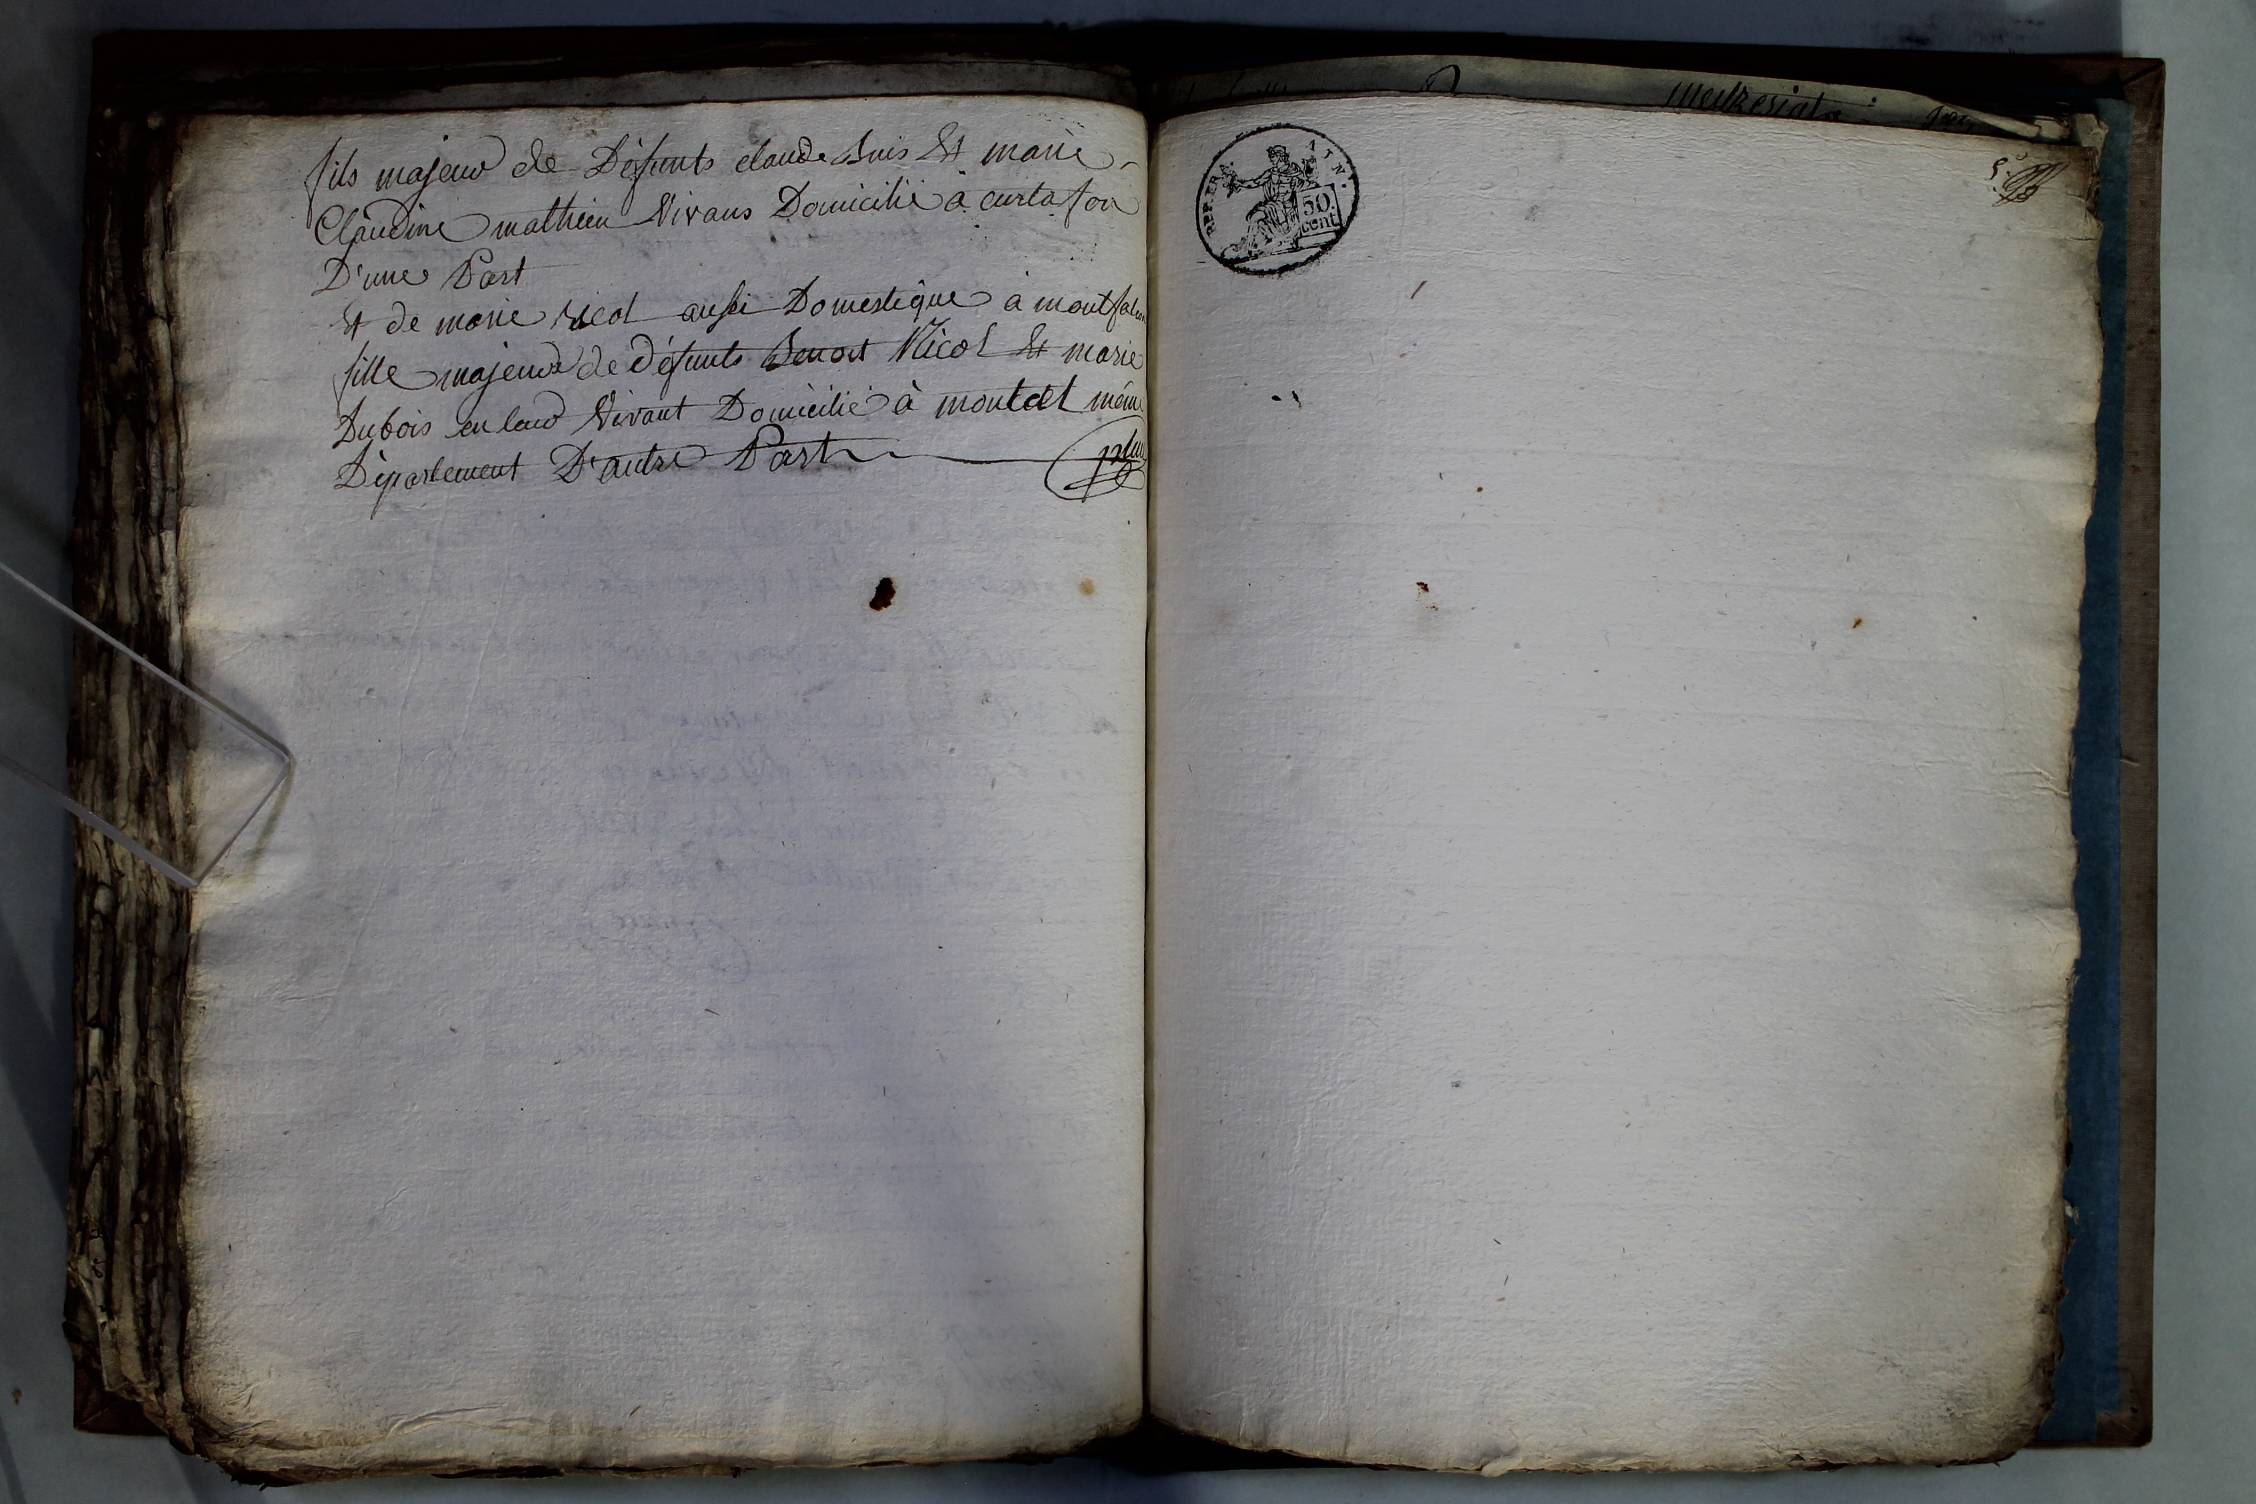 fils majeur de Défunts claude Buis Et marie
Claudine mathieu Vivans Domicilié à curtafon
D'une Part
Et de marie Nicol aussi Domestique à montfalcon
fille majeure de défunts Benoit Nicol Et marie
Dubois en leur Vivant Domicilié à montcet même
Département D'autre Part
REP. FRA.
AIN.
50.
cent.